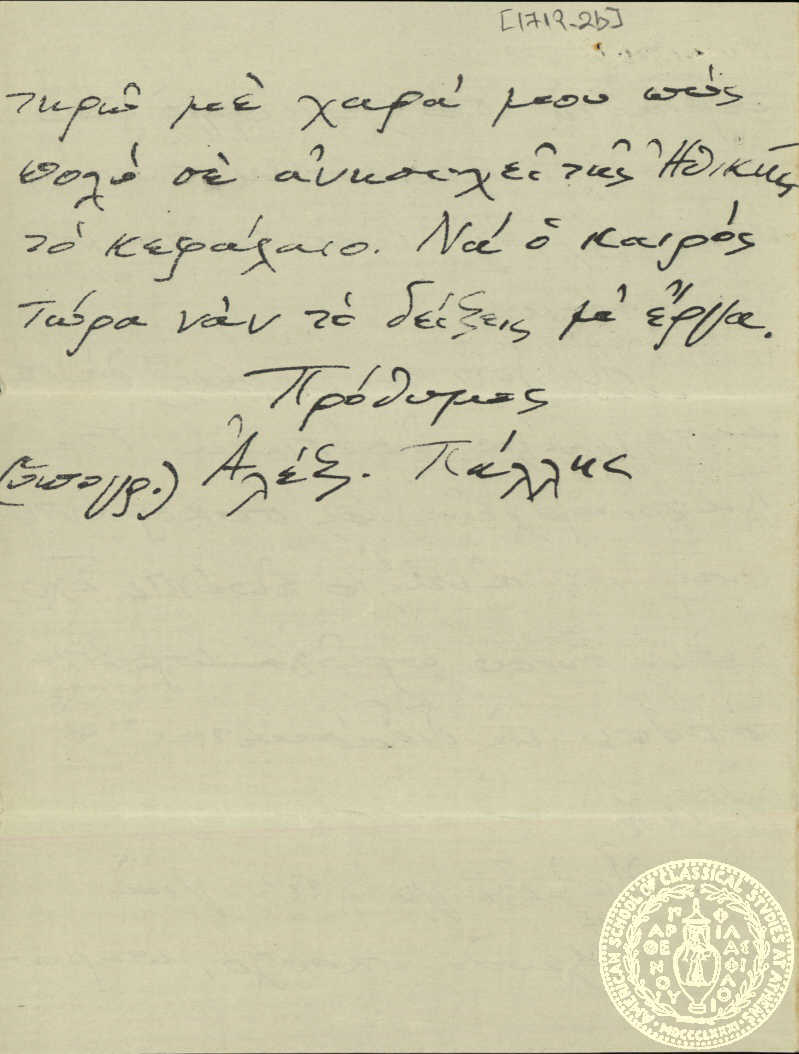 [1719-2b]
τηρῶ μὲ χαρά μου πώς
πολὺ σὲ ἀνησυχεῖ τῆς Ἠθικῆς
τὸ κεφάλαιο. Νά ὁ καιρός
τώρα νὰν τὸ δείξεις μὲ ἔργα.
Πρόθυμος
(ὑπογρ.) Ἀλέξ. Πάλλης
AMERICAN SCHOOL OF CLASSICAL STUDIES AT ATHENS
ΠΑΡΘΕΝΟΥ ΦΙΛΑΣ ΦΙΛΟΙ
MDCCCLXXXI